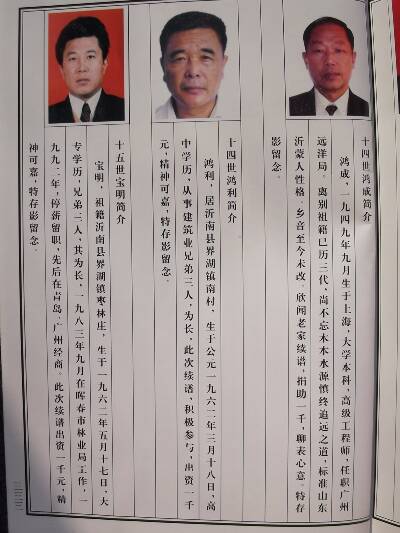 十四世鸿成简介
鸿成，一九四九年九月生于上海，大学本科，高级工程师，任职广州
远洋局。离别祖籍已历三代，尚不忘木本水源慎终追远之道，标准山东
沂蒙人性格。乡音至今未改。欣闻老家续谱，捐助一千，聊表心意。特存
影留念。
十四世鸿利简介
鸿利，居沂南县界湖镇南村，生于公元一九六二年三月十八日，高
中学历，从事建筑业兄弟三人，为长，此次续谱，积极参与，出资一千
元，精神可嘉，特存影留念。
十五世宝明简介
宝明，祖籍沂南县界湖镇枣林庄，生于一九六二年五月十七日，大
专学历，兄弟三人，其为长，一九八三年九月在晖春市林业局工作，一
九九二年，停薪留职，先后在青岛、广州经商。此次续谱出资一千元，精
神可嘉，特存影留念。